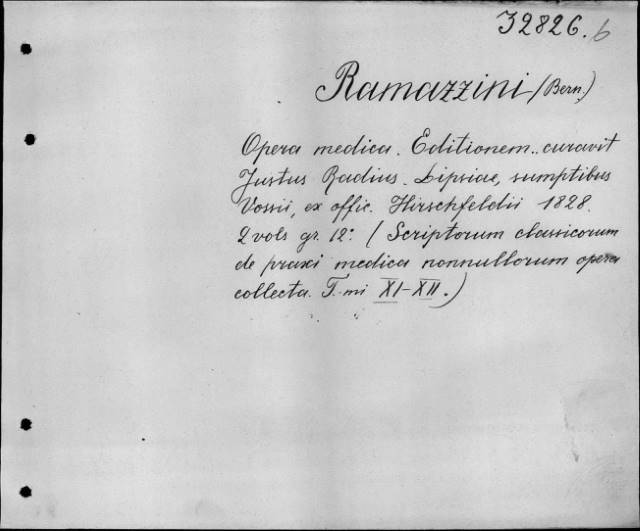 32826.b
Ramazzini (Bern.)
Opera medica. Editionem.. curavit
Justus Radius. Lipsiae, sumptibus
Vossii, ex offic. Hirschfeldii 1828.
2 vols gr. 12º. (Scriptorum classicorum
de praxi medica nonnullorum opera
collecta. T. mi XI-XII.)